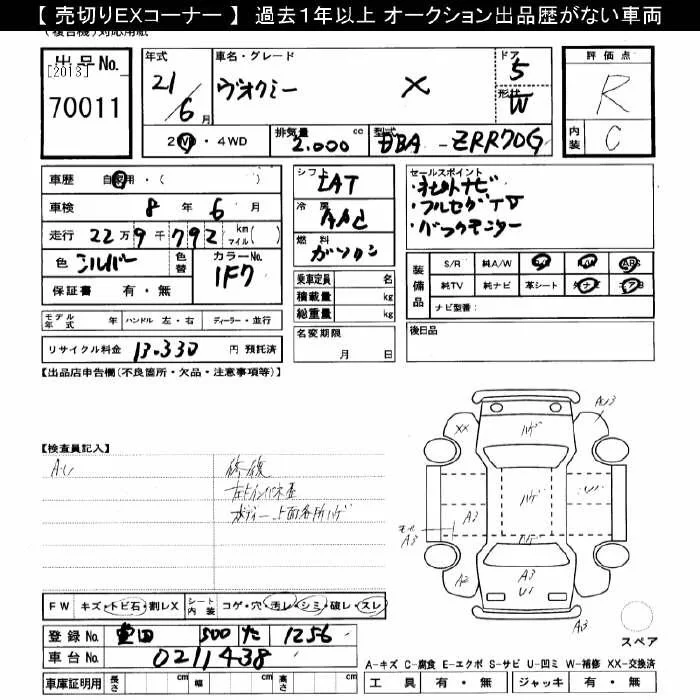 【 売切りEXコーナー 】 過去1年以上 オークション出品歴がない車両
(複合機)対応用紙
出品No.
[2013]
70011
年式 車名・グレード ドア 評価点
21/6月 ヴォクシー X 5 形状 W R
2WD・4WD 排気量 2.000 cc 型式 DBA - ZRR70G 内装 C
車歴 自家用・( )
車検 8 年 6 月
走行 22万9千792 km マイル( )
色 シルバー 色替 カラーNo. 1F7
保証書 有・無
シフト IAT
冷房 AAC
燃料 ガソリン
乗車定員 名
積載量 kg
総重量 kg
名変期限 月 日
セールスポイント
・社外ナビ
・フルセグTV
・バックモニター
装備品 S/R 純A/W P/S P/W ABS
純TV 純ナビ 革シート 外ナビ エアB
ナビ型番:
後日品
モデル年式 年 ハンドル 左・右 ディーラー・並行
リサイクル料金 13.330 円 預託済
【出品店申告欄(不良箇所・欠品・注意事項等)】
【検査員記入】
修復
左トインパネ歪
ボディー上面各所ハゲ
XX
A3
ハゲ
ハゲ
A3
A3
ハゲ
A2
A3
U1
A3
スペア
FW キズ・トビ石・割レX シート内装 コゲ・穴・汚レ・シミ・破レ・スレ
登録No. 豊田 500 た 1256
車台No. 0211438
車庫証明用 長さ cm 幅 cm 高さ cm
A-キズ C-腐食 E-エクボ S-サビ U-凹ミ W-補修 XX-交換済
工具 有・無 ジャッキ 有・無